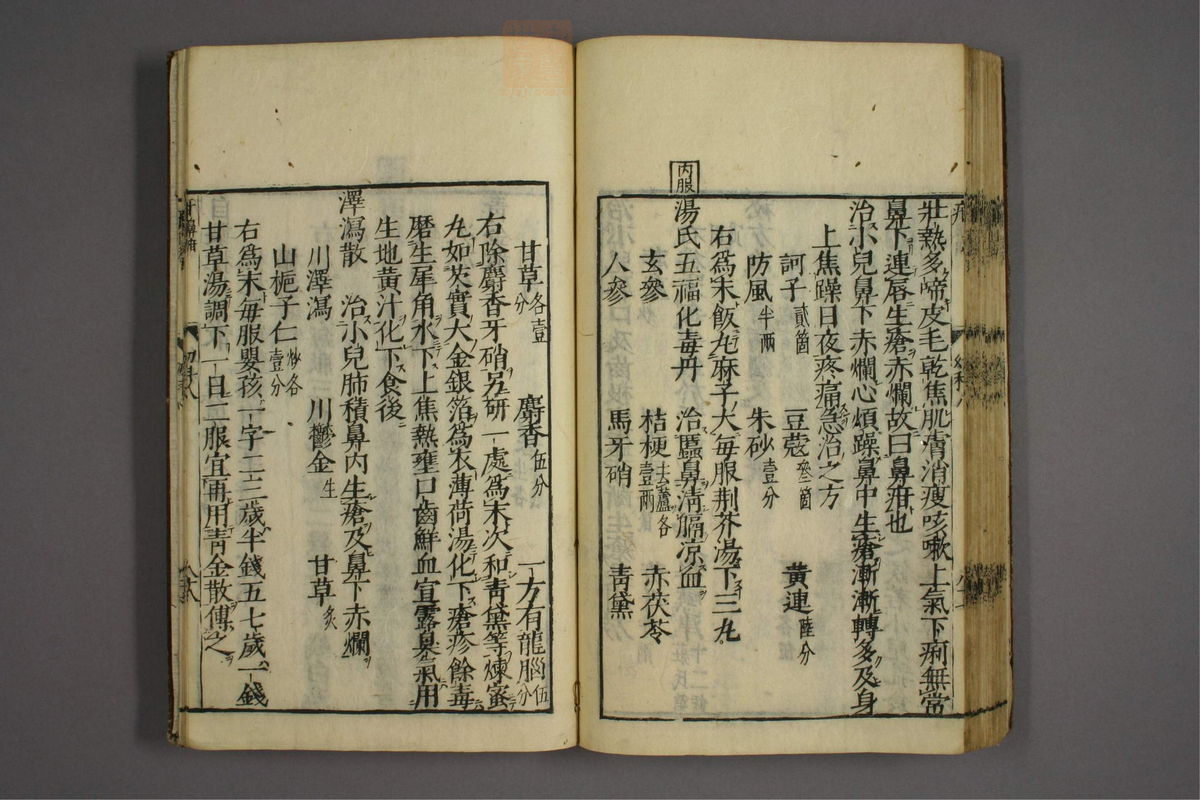 壯熱多啼皮毛乾焦肌膚消瘦咳嗽上氣下痢無常
鼻下連唇生瘡赤爛故曰鼻疳也
治小兒鼻下赤爛心煩躁鼻中生瘡漸漸轉多及身
上焦躁日夜疼痛急治之方
訶子貳箇 豆蔻參箇 黃連陸分
防風半兩 朱砂壹分
右爲末飯丸麻子大每服荆芥湯下三丸
內服
湯氏五福化毒丹 治䘌鼻清膈凉血
玄參 桔梗去蘆各壹兩 赤茯苓
人參 馬牙硝 青黛
甘草各壹分 麝香伍分 一方有龍腦伍分
右除麝香牙硝另研一處爲末次和青黛等煉蜜
丸如芡實大金銀箔爲衣薄荷湯化下瘡疹餘毒
磨生犀角水下上焦熱壅口齒鮮血宣露臭氣用
生地黃汁化下食後
澤瀉散 治小兒肺積鼻內生瘡及鼻下赤爛
川澤瀉 川鬱金生 甘草炙
山梔子仁炒各壹分
右爲末每服嬰孩一字二三歲半錢五七歲一錢
甘草湯調下一日二服宜再用青金散傳之